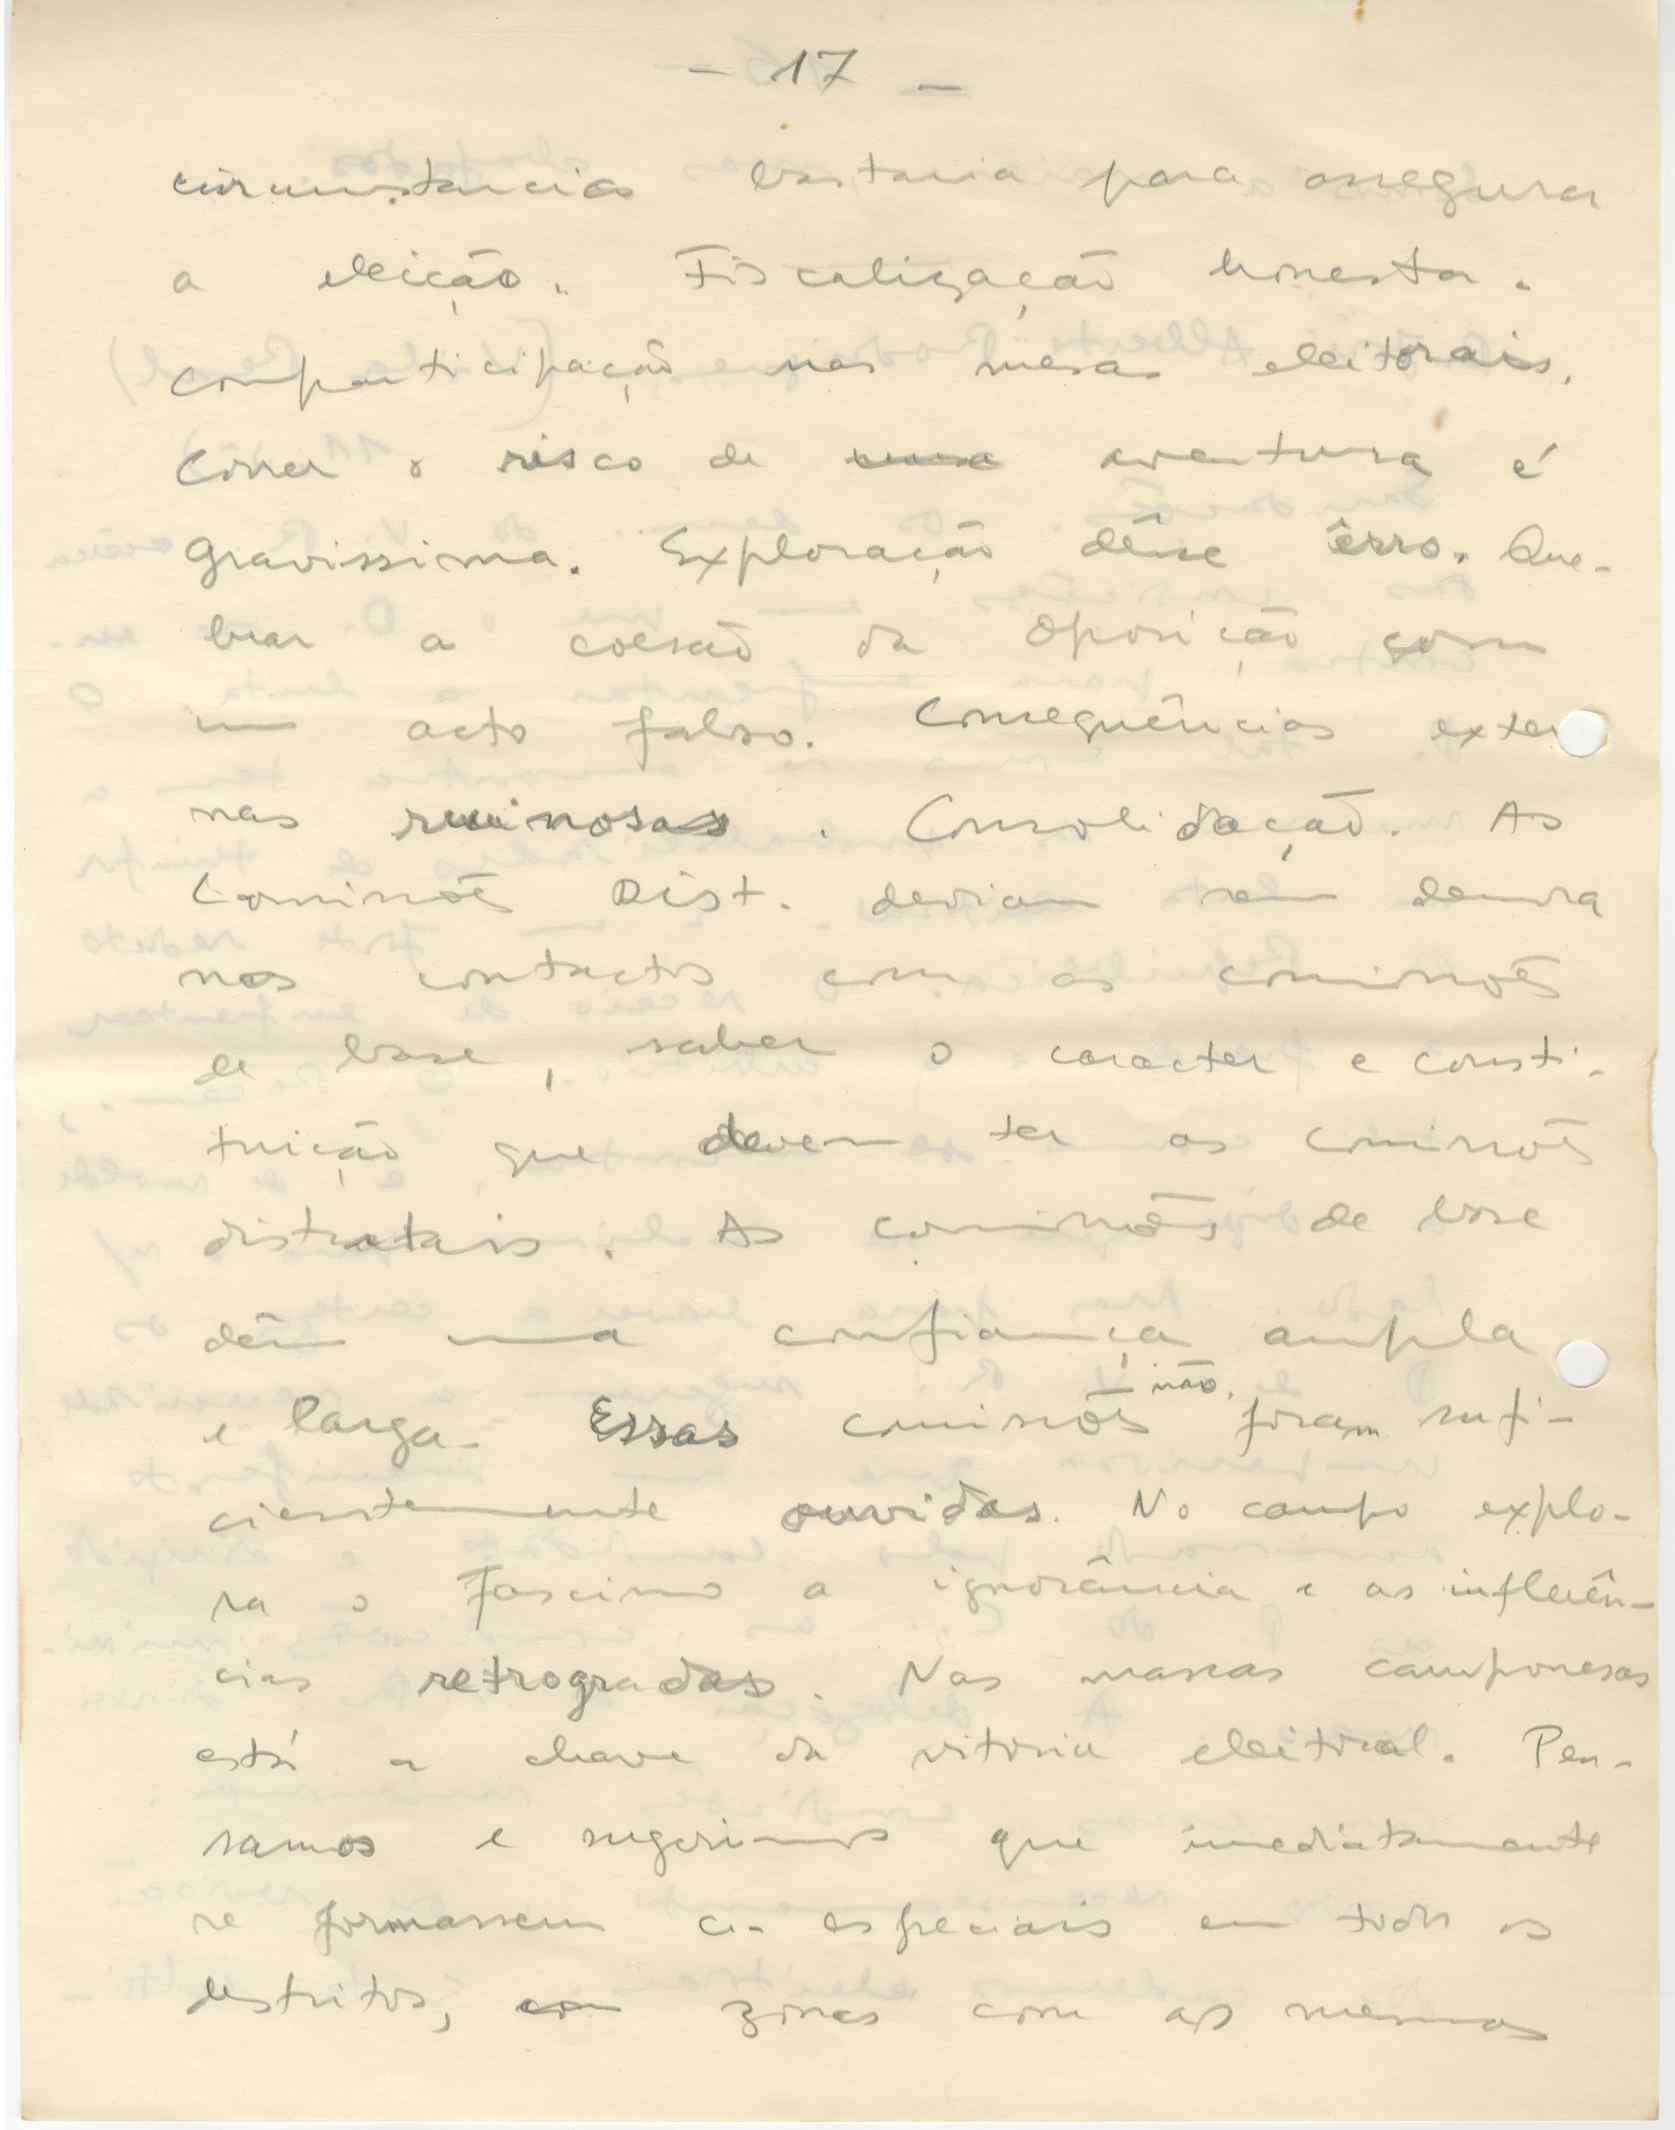 - 17 -
circunstancias bastaria para assegurar
a eleição. Fiscalização honesta.
comparticipação nas mesas eleitorais.
Correr o risco de uma aventura é
gravissima. Exploração dêsse êrro. Que-
brar a coesão da oposição com
um acto falso. Consequências exter
nas ruinosas. Consolidação. As
Comissões Dist. deviam sem demora
nos contactos com as comissões
de base, saber o caracter e consti-
tuição que devem ter as comissões
distritais. As comissões de base
dêm uma confiança ampla
e larga. Essas comissões não foram sufi-
cientemente ouvidas. No campo explo-
ra o fascismo a ignorância e as influên-
cias retrogradas. Nas massas camponesas
está a chave da vitoria eleitoral. Pen-
samos e sugerimos que imediatamente
se formassem c. especiais em todos os
destritos, com zonas com as mesmas